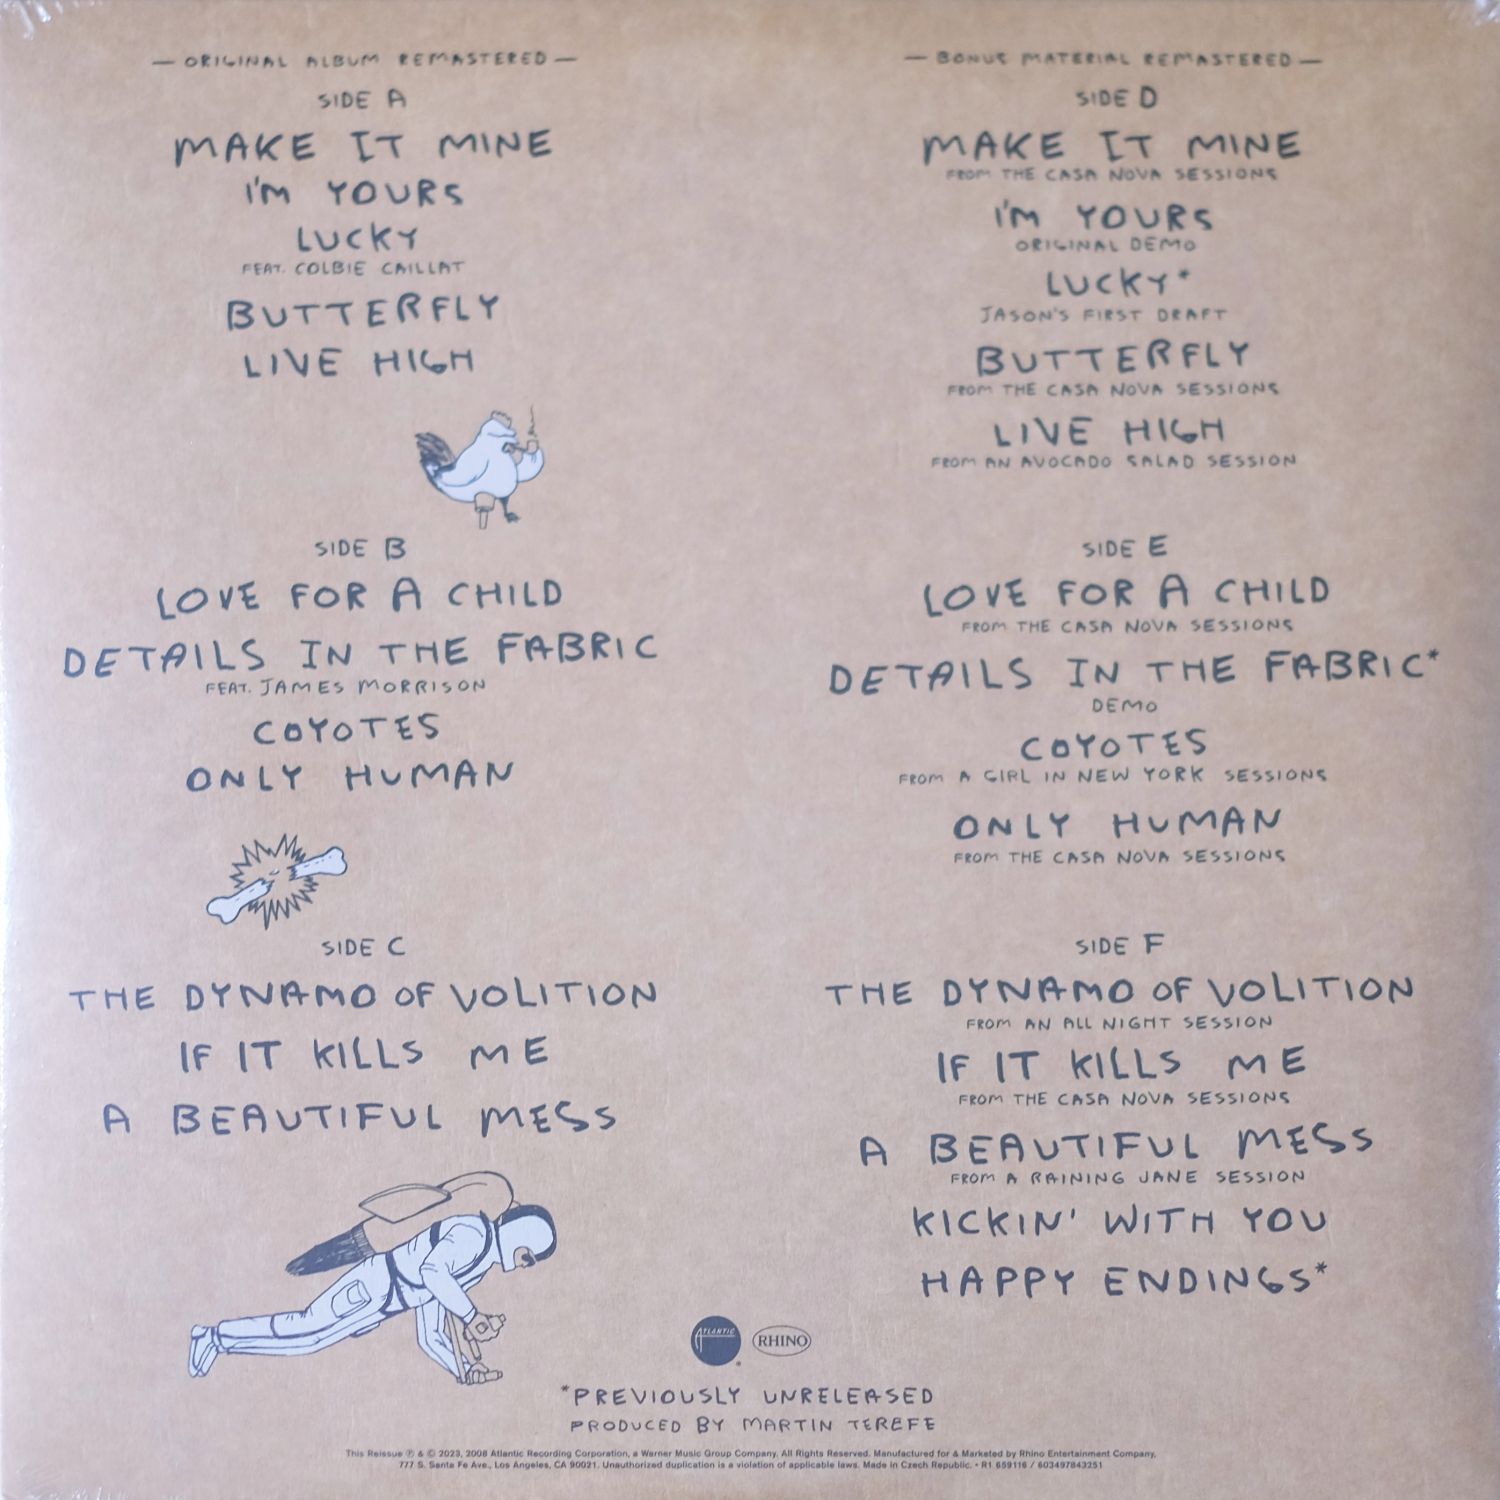 — ORIGINAL ALBUM REMASTERED —
SIDE A
MAKE IT MINE
I'M YOURS
LUCKY
FEAT. COLBIE CAILLAT
BUTTERFLY
LIVE HIGH
SIDE B
LOVE FOR A CHILD
DETAILS IN THE FABRIC
FEAT. JAMES MORRISON
COYOTES
ONLY HUMAN
SIDE C
THE DYNAMO OF VOLITION
IF IT KILLS ME
A BEAUTIFUL MESS
— BONUS MATERIAL REMASTERED —
SIDE D
MAKE IT MINE
FROM THE CASA NOVA SESSIONS
I'M YOURS
ORIGINAL DEMO
LUCKY*
JASON'S FIRST DRAFT
BUTTERFLY
FROM THE CASA NOVA SESSIONS
LIVE HIGH
FROM AN AVOCADO SALAD SESSION
SIDE E
LOVE FOR A CHILD
FROM THE CASA NOVA SESSIONS
DETAILS IN THE FABRIC*
DEMO
COYOTES
FROM A GIRL IN NEW YORK SESSIONS
ONLY HUMAN
FROM THE CASA NOVA SESSIONS
SIDE F
THE DYNAMO OF VOLITION
FROM AN ALL NIGHT SESSION
IF IT KILLS ME
FROM THE CASA NOVA SESSIONS
A BEAUTIFUL MESS
FROM A RAINING JANE SESSION
KICKIN' WITH YOU
HAPPY ENDINGS*
ATLANTIC
RHINO
*PREVIOUSLY UNRELEASED
PRODUCED BY MARTIN TEREFE
This Reissue ℗ & © 2023, 2008 Atlantic Recording Corporation, a Warner Music Group Company. All Rights Reserved. Manufactured for & Marketed by Rhino Entertainment Company,
777 S. Santa Fe Ave., Los Angeles, CA 90021. Unauthorized duplication is a violation of applicable laws. Made in Czech Republic. • R1 659116 / 603497843251